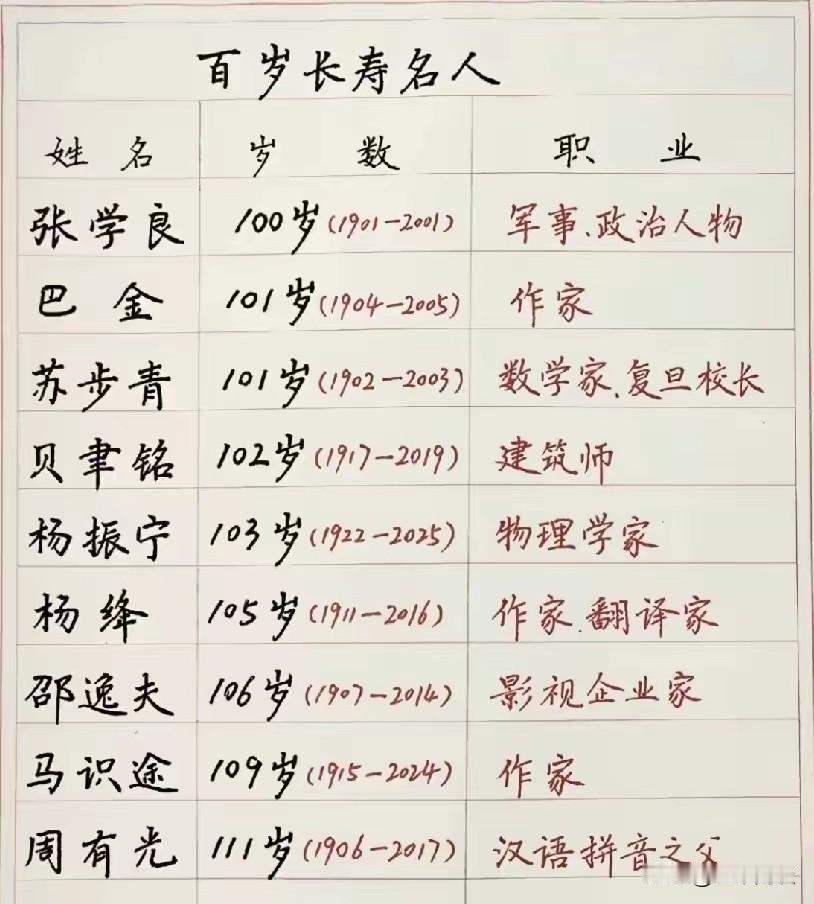 百岁长寿名人
姓名 岁数 职业
张学良 100岁(1901-2001) 军事、政治人物
巴金 101岁(1904-2005) 作家
苏步青 101岁(1902-2003) 数学家、复旦校长
贝聿铭 102岁(1917-2019) 建筑师
杨振宁 103岁(1922-2025) 物理学家
杨绛 105岁(1911-2016) 作家、翻译家
邵逸夫 106岁(1907-2014) 影视企业家
马识途 109岁(1915-2024) 作家
周有光 111岁(1906-2017) 汉语拼音之父